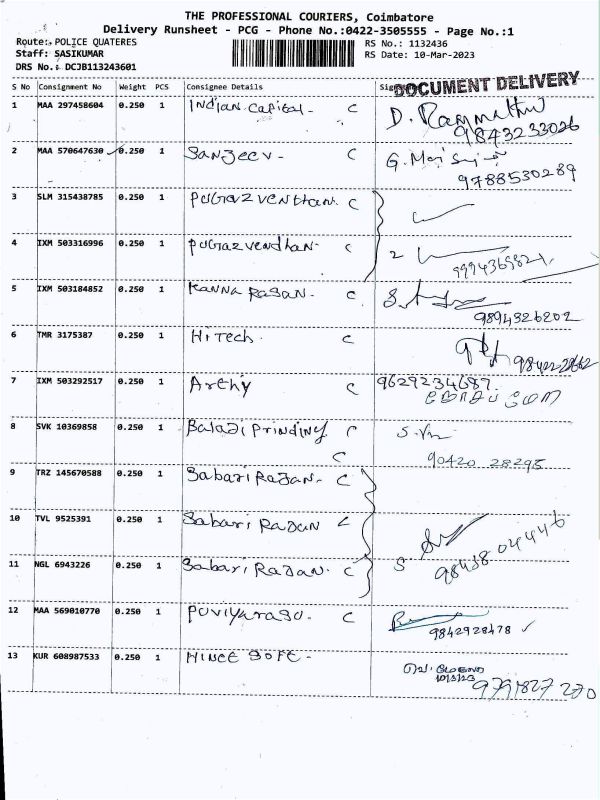 THE PROFESSIONAL COURIERS, Coimbatore
Delivery Runsheet - PCG - Phone No.:0422-3505555 - Page No.:1
Route: POLICE QUATERES
RS No.: 1132436
Staff: SASIKUMAR
RS Date: 10-Mar-2023
DRS No.: DCJB113243601
DOCUMENT DELIVERY
S No Consignment No Weight PCS Consignee Details Sig
1 MAA 297458604 0.250 1 Indian capital - C D.
9843233026
2 MAA 570647630 0.250 1 Sanjeev - C G.
9788530289
3 SLM 315438785 0.250 1 pugazventhan. C
4 IXM 503316996 0.250 1 pugazvendhan - C 2
5 IXM 503184852 0.250 1 Kanna Rasan - C
9894326202
6 TMR 3175387 0.250 1 Hitech. C
7 IXM 503292517 0.250 1 Archy C 9629234687.
8 SVK 10369858 0.250 1 Balaji Prindiny C
C 90420 28295
9 TRZ 145670588 0.250 1 Sabari Rajan - C
10 TVL 9525391 0.250 1 Sabari Rajan C
11 NGL 6943226 0.250 1 Sabari Rajan. C S 98438 04446
12 MAA 569010770 0.250 1 Poviyarasu. C
9842928478 ✓
13 KUR 608987533 0.250 1
10/3/23
9791827 270